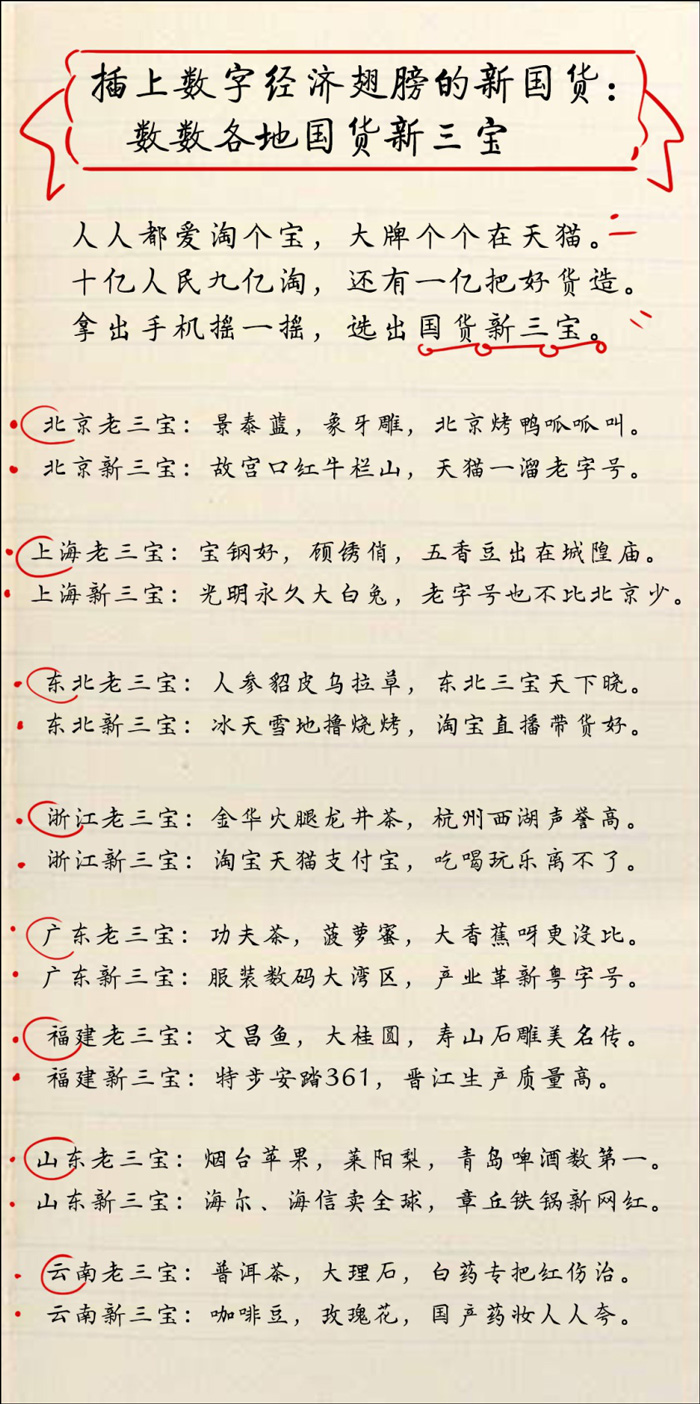 插上数字经济翅膀的新国货：
数数各地国货新三宝
人人都爱淘个宝，大牌个个在天猫。
十亿人民九亿淘，还有一亿把好货造。
拿出手机摇一摇，选出国货新三宝。
北京老三宝：景泰蓝，象牙雕，北京烤鸭呱呱叫。
北京新三宝：故宫口红牛栏山，天猫一溜老字号。
上海老三宝：宝钢好，顾绣俏，五香豆出在城隍庙。
上海新三宝：光明永久大白兔，老字号也不比北京少。
东北老三宝：人参貂皮乌拉草，东北三宝天下晓。
东北新三宝：冰天雪地撸烧烤，淘宝直播带货好。
浙江老三宝：金华火腿龙井茶，杭州西湖声誉高。
浙江新三宝：淘宝天猫支付宝，吃喝玩乐离不了。
广东老三宝：功夫茶，菠萝蜜，大香蕉呀更没比。
广东新三宝：服装数码大湾区，产业革新粤字号。
福建老三宝：文昌鱼，大桂圆，寿山石雕美名传。
福建新三宝：特步安踏361，晋江生产质量高。
山东老三宝：烟台苹果，莱阳梨，青岛啤酒数第一。
山东新三宝：海尔、海信卖全球，章丘铁锅新网红。
云南老三宝：普洱茶，大理石，白药专把红伤治。
云南新三宝：咖啡豆，玫瑰花，国产药妆人人夸。